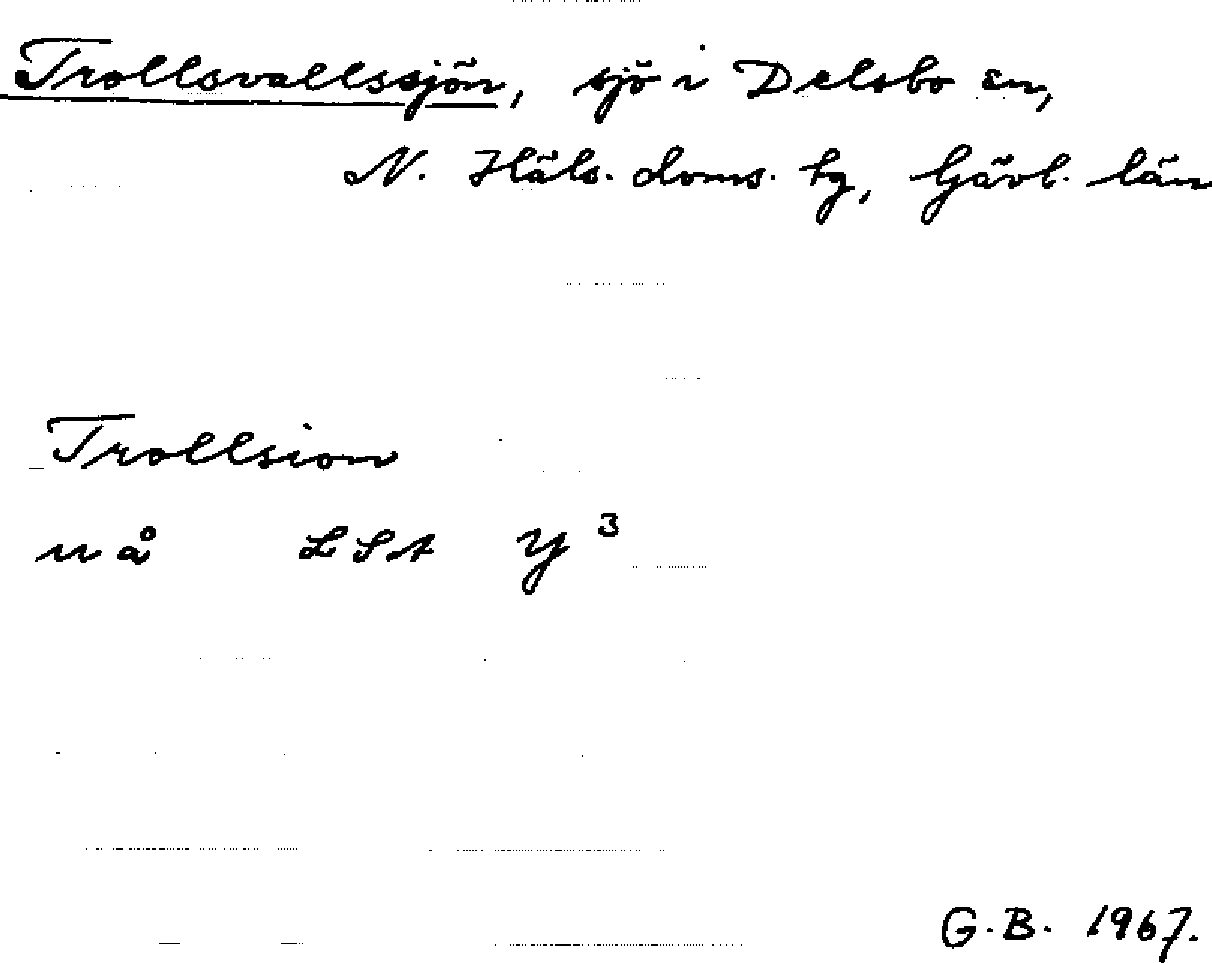 Trollsvallssjön, sjö i Delsbo sn,
N. Häls. doms. tg, Gävl. län
Trollsion
uå LSA Y 3
G.B. 1967.